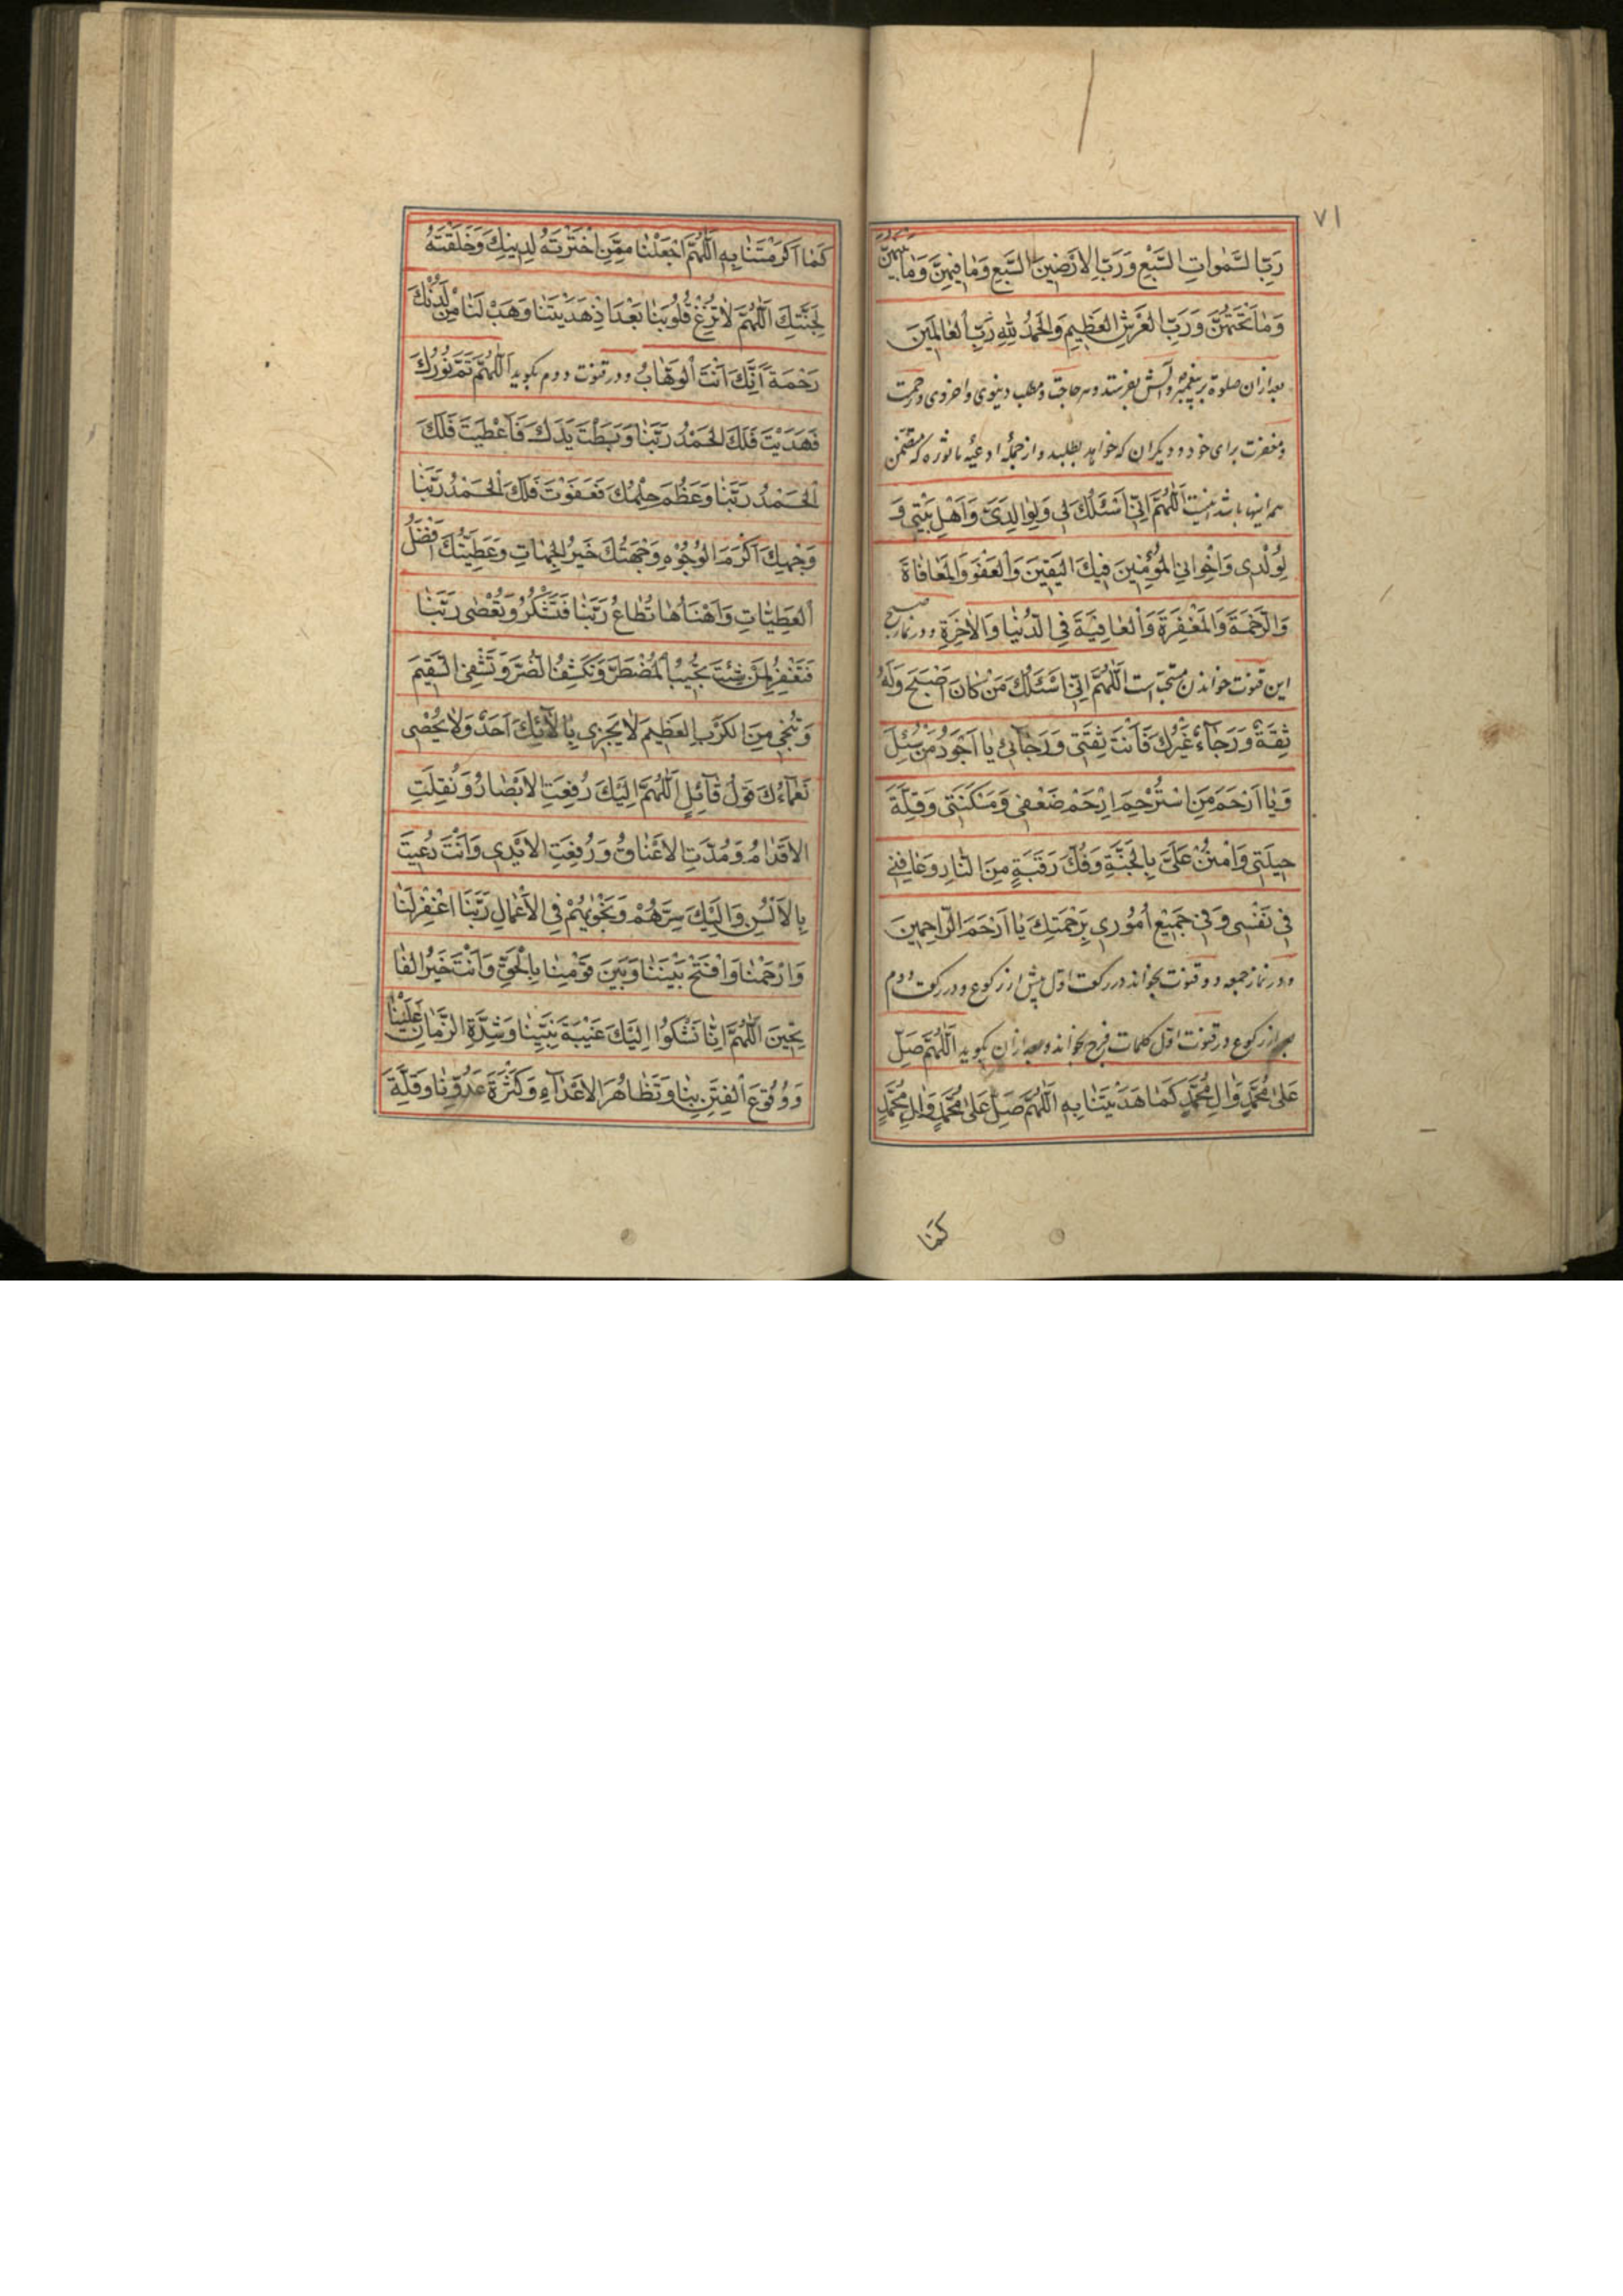 ٧١
رَبِّ السَّمٰواتِ السَّبْعِ وَرَبِّ الاَرَضينَ السَّبْعِ وَمٰا فيهِنَّ وَمٰا بَيْنَهُنَّ
وَمٰا تَحْتَهُنَّ وَرَبِّ الْعَرْشِ الْعَظيمِ وَالْحَمْدُ لِلّٰهِ رَبِّ الْعٰالَمينَ
بعد ازان صلوة بر پیغمبر و آلش بفرستد و هر حاجت و مطلب دنیوی و اخروی و رحمت
و مغفرت برای خود و دیکران که خواهد بطلبد و از جملهٔ ادعیه ماثوره که متضمن
همه اینها باشد اینست اَللّٰهُمَّ اِنّى اَسْئَلُكَ لى وَلِوٰالِدَىَّ وَاَهْلِ بَيْتى وَ
لِوُلْدى وَاِخْوانِى الْمُؤْمِنينَ فيكَ الْيَقينَ وَالْعَفْوَ وَالْمُعٰافٰاةَ
وَالرَّحْمَةَ وَالْمَغْفِرَةَ وَالْعٰافِيَةَ فِى الدُّنْيٰا وَالْاٰخِرَةِ و در نماز صبح
این قنوت خواندن مستحب است اَللّٰهُمَّ اِنّى اَسْئَلُكَ مَنْ كٰانَ اَصْبَحَ وَلَهُ
ثِقَةٌ وَرَجٰاءٌ غَيْرُكَ فَاَنْتَ ثِقَتى وَرَجٰائى يٰا اَجْوَدَ مَنْ سُئِلَ
وَيٰا اَرْحَمَ مَنِ اسْتُرْحِمَ اِرْحَمْ ضَعْفى وَمَسْكَنَتى وَقِلَّةَ
حيلَتى وَامْنُنْ عَلَىَّ بِالْجَنَّةِ وَفُكَّ رَقَبَةٍ مِنَ النّٰارِ وَعٰافِنى
فى نَفْسى وَفى جَميعِ اُمُورى بِرَحْمَتِكَ يٰا اَرْحَمَ الرّٰاحِمينَ
و در نماز جمعه دو قنوت بخواند در رکعت اول پیش از رکوع و در رکعت دوم
بعد از رکوع در قنوت اول کلمات فرج بخواند و بعد ازان بکوید اَللّٰهُمَّ صَلِّ
عَلىٰ مُحَمَّدٍ وَاٰلِ مُحَمَّدٍ كَمٰا هَدَيْتَنٰا بِهِ اَللّٰهُمَّ صَلِّ عَلىٰ مُحَمَّدٍ وَاٰلِ مُحَمَّدٍ
كَمٰا
كَمٰا اَكْرَمْتَنٰا بِهِ اَللّٰهُمَّ اجْعَلْنٰا مِمَّنِ اخْتَرْتَهُ لِدينِكَ وَخَلَقْتَهُ
لِجَنَّتِكَ اَللّٰهُمَّ لاٰ تُزِغْ قُلُوبَنٰا بَعْدَ اِذْ هَدَيْتَنٰا وَهَبْ لَنٰا مِنْ لَدُنْكَ
رَحْمَةً اِنَّكَ اَنْتَ الْوَهّٰابُ و در قنوت دوم بکوید اَللّٰهُمَّ تَمَّ نُورُكَ
فَهَدَيْتَ فَلَكَ الْحَمْدُ رَبَّنٰا وَبَسَطْتَ يَدَكَ فَاَعْطَيْتَ فَلَكَ
الْحَمْدُ رَبَّنٰا وَعَظُمَ حِلْمُكَ فَعَفَوْتَ فَلَكَ الْحَمْدُ رَبَّنٰا
وَجْهُكَ اَكْرَمُ الْوُجُوْهِ وَجِهَتُكَ خَيْرُ الْجِهٰاتِ وَعَطِيَّتُكَ اَفْضَلُ
الْعَطِيّٰاتِ وَاَهْنَاُهٰا تُطٰاعُ رَبَّنٰا فَتَشْكُرُ وَتُعْصٰى رَبَّنٰا
فَتَغْفِرُ لِمَنْ شِئْتَ تُجيبُ الْمُضْطَرَّ وَتَكْشِفُ الضُّرَّ وَتَشْفِى السَّقيمَ
وَتُنْجى مِنَ الْكَرْبِ الْعَظيمِ لاٰ يَجْزى بِاٰلاٰئِكَ اَحَدٌ وَلاٰ يُحْصى
نَعْمٰاءَكَ قَوْلُ قٰائِلٍ اَللّٰهُمَّ اِلَيْكَ رُفِعَتِ الْاَبْصٰارُ وَنُقِلَتِ
الْاَقْدٰامُ وَمُدَّتِ الْاَعْنٰاقُ وَرُفِعَتِ الْاَيْدى وَاَنْتَ دُعيتَ
بِالْاَلْسُنِ وَاِلَيْكَ سِرُّهُمْ وَنَجْوٰيهُمْ فِى الْاَعْمٰالِ رَبَّنَا اغْفِرْلَنٰا
وَارْحَمْنٰا وَافْتَحْ بَيْنَنٰا وَبَيْنَ قَوْمِنٰا بِالْحَقِّ وَاَنْتَ خَيْرُ الْفٰا
تِحينَ اَللّٰهُمَّ اِنّٰا نَشْكُوا اِلَيْكَ غَيْبَةَ نَبِيِّنٰا وَشِدَّةَ الزَّمٰانِ عَلَيْنٰا
وَوُقُوعَ الْفِتَنِ بِنٰا وَتَظٰاهُرَ الْاَعْدٰاءِ وَكَثْرَةَ عَدُوِّنٰا وَقِلَّةَ